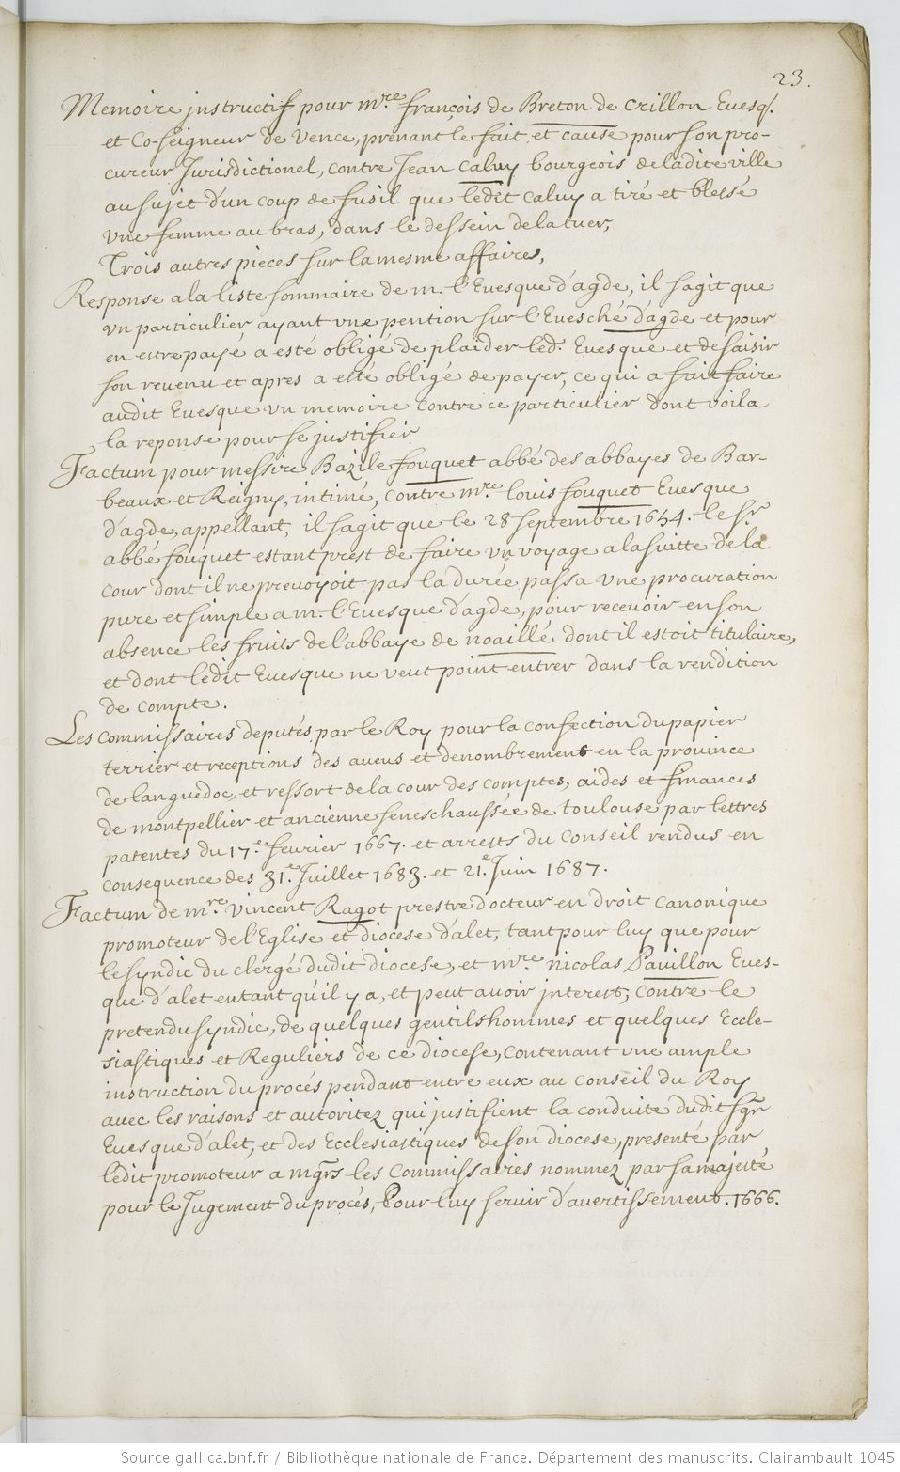 23.
Memoire instructif pour mre françois de Breton de Crillon Euesq.
et Coseigneur de Vence, prenant le fait et cause pour son pro-
cureur Jurisdictionel, contre Jean Caluy bourgeois de ladite ville
au sujet d'un coup de fusil que ledit Caluy a tiré et blessé
vne femme au bras, dans le dessein de la tuer,
Trois autres pieces sur la mesme affaires,
Response a la liste sommaire de m. l'Euesque d'agde, il sagit que
vn particulier ayant vne pention sur l'Euesché d'agde et pour
en estre payé a esté obligé de plaider led. Euesque et de saisir
son reuenu et apres a esté obligé de payer, ce qui a fait faire
audit Euesque vn memoire contre ce particulier dont voila
la reponse pour se justifier
Factum pour messire Bazile fouquet abbé des abbayes de Bar-
beaux et Reigny, intimé, contre mre. louis fouquet Euesque
d'agde, appellant, il sagit que le 28 septembre 1654. le sr
abbé fouquet estant prest de faire vn voyage a la suitte de la
cour dont il ne preuoyoit pas la durée passa vne procuration
pure et simple a m. l'Euesque d'agde, pour receuoir en son
absence les fruits de l'abbaye de noaillé dont il estoit titulaire,
et dont ledit Euesque ne veut point entrer dans la rendition
de compte.
Les Commissaires deputés par le Roy pour la confection du papier
terrier et receptions des aueus et denombrement en la prouince
de languedoc et ressort de la cour des comptes, aides et finances
de montpellier et ancienne seneschaussée de toulouse par lettres
patentes du 17e. feurier 1667. et arrests du Conseil rendus en
consequence des 31e. Juillet 1683. et 21e. Juin 1687.
Factum de mre. vincent Ragot prestre docteur en droit canonique
promoteur de l'Eglise et diocese d'alet, tant pour luy que pour
le syndic du clergé dudit diocese, et mre nicolas Pauillon Eues-
que d'alet entant qu'il y a, et peut auoir interest, contre le
pretendu syndic, de quelques gentilshommes et quelques Eccle-
siastiques et Reguliers de ce diocese, contenant vne ample
instruction du procés pendant entre eux au conseil du Roy
auec les raisons et autoritez qui justifient la conduite dudit sgr
Euesque d'alet, et des Ecclesiastiques de son diocese, presenté par
ledit promoteur a mgrs les Commissaires nommez par sa majesté
pour le Jugement du procés, Pour luy seruir d'auertissement. 1666.
Source gallica.bnf.fr / Bibliothèque nationale de France. Département des manuscrits. Clairambault 1045